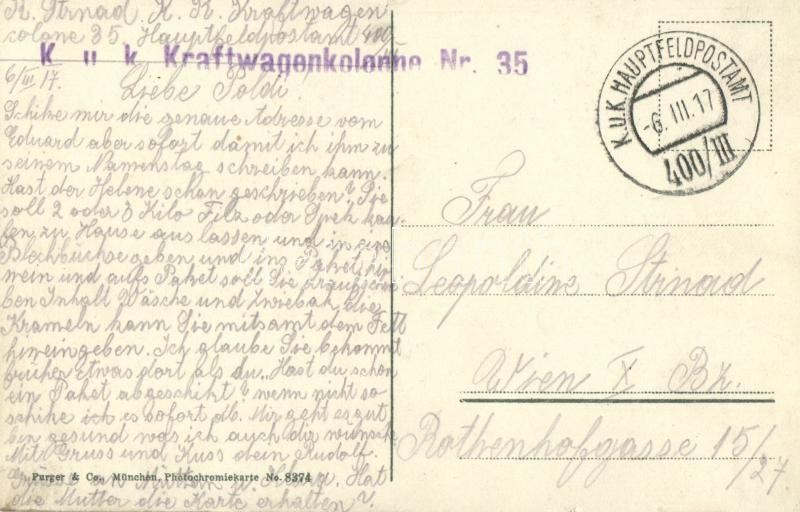 R. Strnad K. K. Kraftwagen
colone 35. Hauptfeldpostamt 400/III
K. u. k. Kraftwagenkolonne Nr. 35
6/III 17. Liebe Poldi!
Schike mir die genaue Adresse vom
Eduard aber sofort damit ich ihm zu
seinem Namenstag schreiben kann.
Hast der Helene schon geschrieben? Sie
soll 2 oder 3 Kilo Filz oder Spek kau-
fen zu Hause aus lassen und in eine
Blechbüchse geben und ins Paket hin
nein und aufs Paket soll Sie draufschrei
ben Inhalt Wäsche und Zwiebak, die
Krameln kann Sie mitsamt dem Fett
hineingeben. Ich glaube Sie bekommt
früher etwas dort als du. Hast du schon
ein Paket abgeschikt? wenn nicht so
schike ich es sofort ab. Mir geht es gut
bin gesund was ich auch dir wünsche
Mit Gruss und Kuss dein Rudolf.
Grüsse an Mutter u. Hat
die Mutter die Karte erhalten?
Purger & Co., München, Photochromiekarte No. 8374
K. u. K. HAUPTFELDPOSTAMT
-6. III. 17
400/III
Frau
Leopoldine Strnad
Wien X Bz.
Rothenhofgasse 15/27.